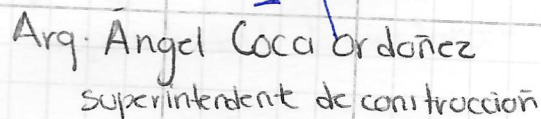 Arq. Ángel Coca Ordoñez
superintendent de construccion